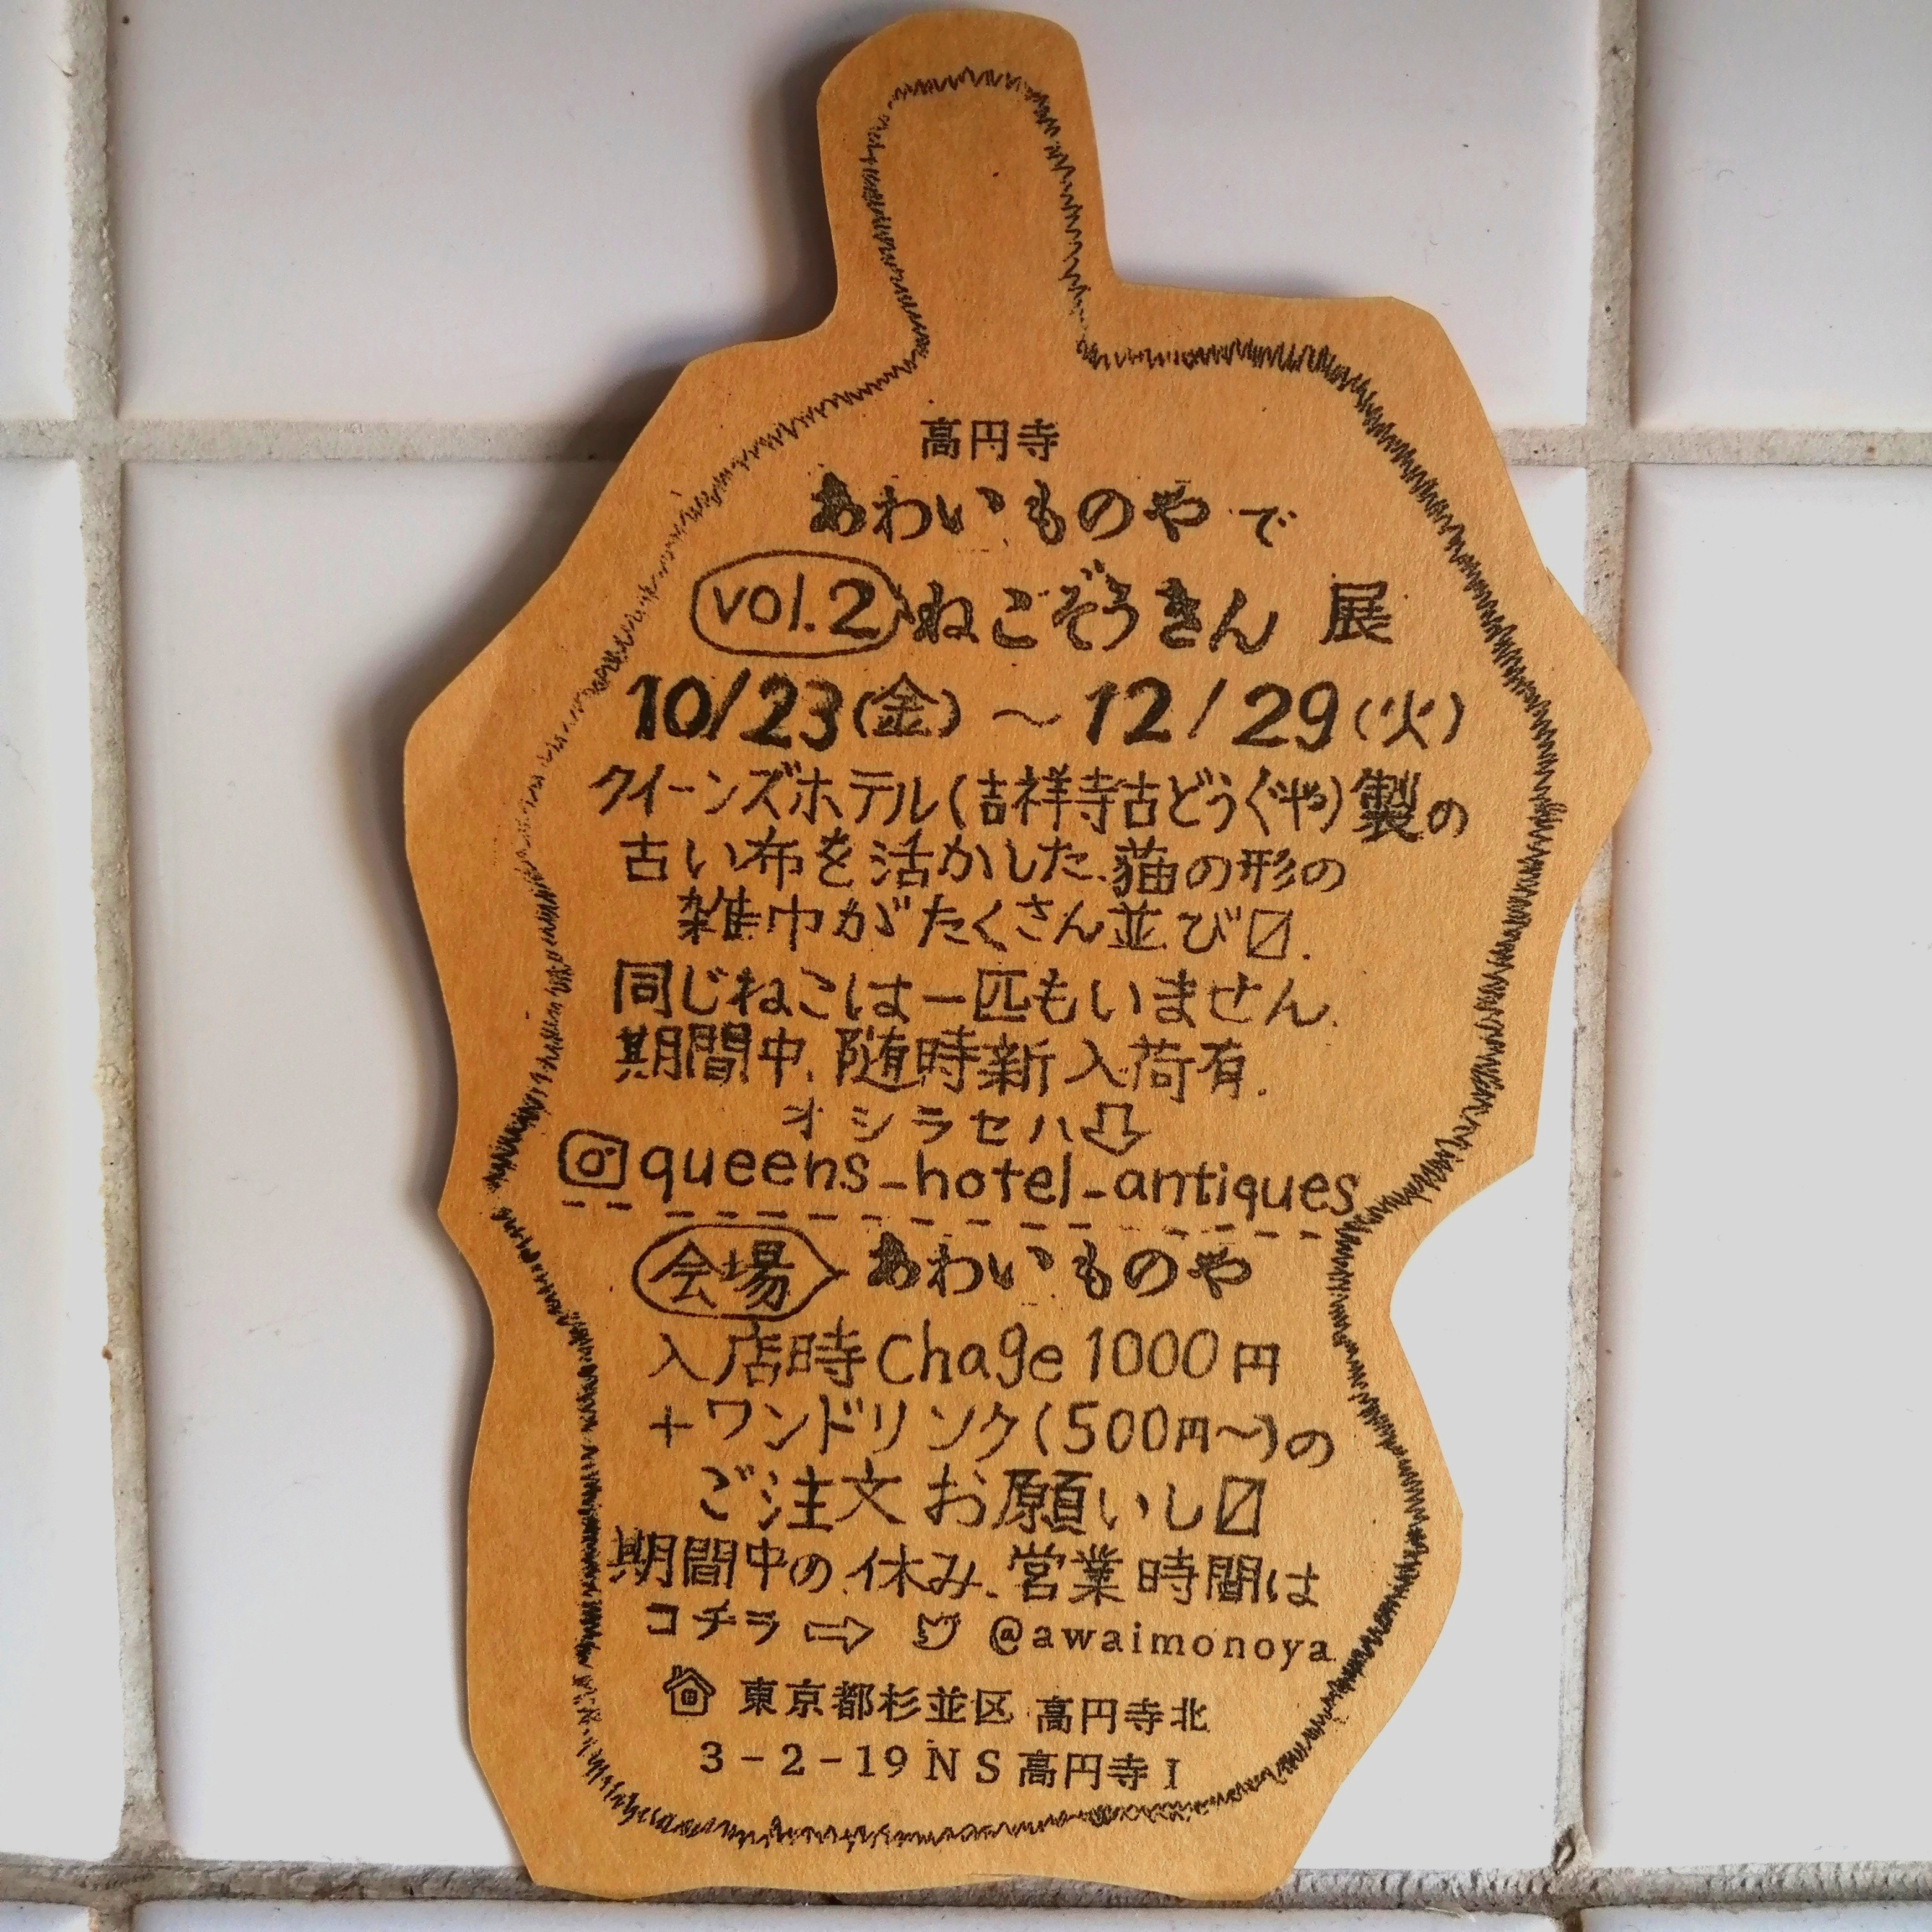 高円寺
あわいものやで
vol.2 ねこぞうきん 展
10/23(金)〜12/29(火)
クイーンズホテル(吉祥寺古どうぐや)製の
古い布を活かした.猫の形の
雑巾がたくさん並び〼.
同じねこは一匹もいません.
期間中.随時新入荷有.
オシラセハ⇩
queens_hotel_antiques
会場 あわいものや
入店時Chage1000円
+ワンドリンク(500円〜)の
ご注文お願いし〼
期間中の休み.営業時間は
コチラ⇨ @awaimonoya
東京都杉並区 高円寺北
3-2-19NS高円寺I